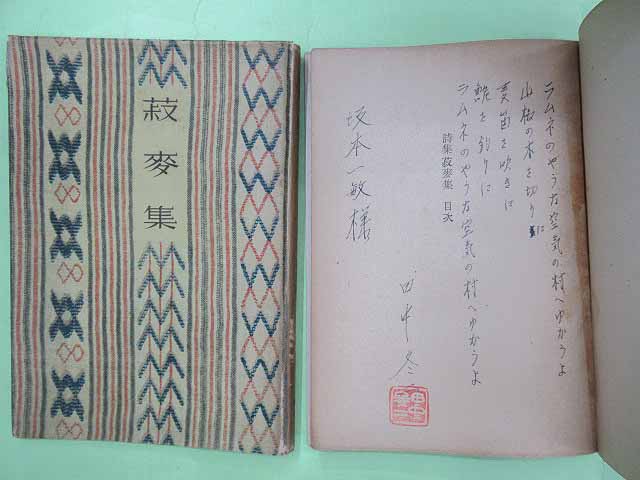 菽麥集
ラムネのやうな空気の村へゆかうよ
山椒の木を切りに
麦笛を吹きに
鯰を釣りに
ラムネのやうな空気の村へゆかうよ
詩集菽麥集 目次
坂本一敏様
田中冬二